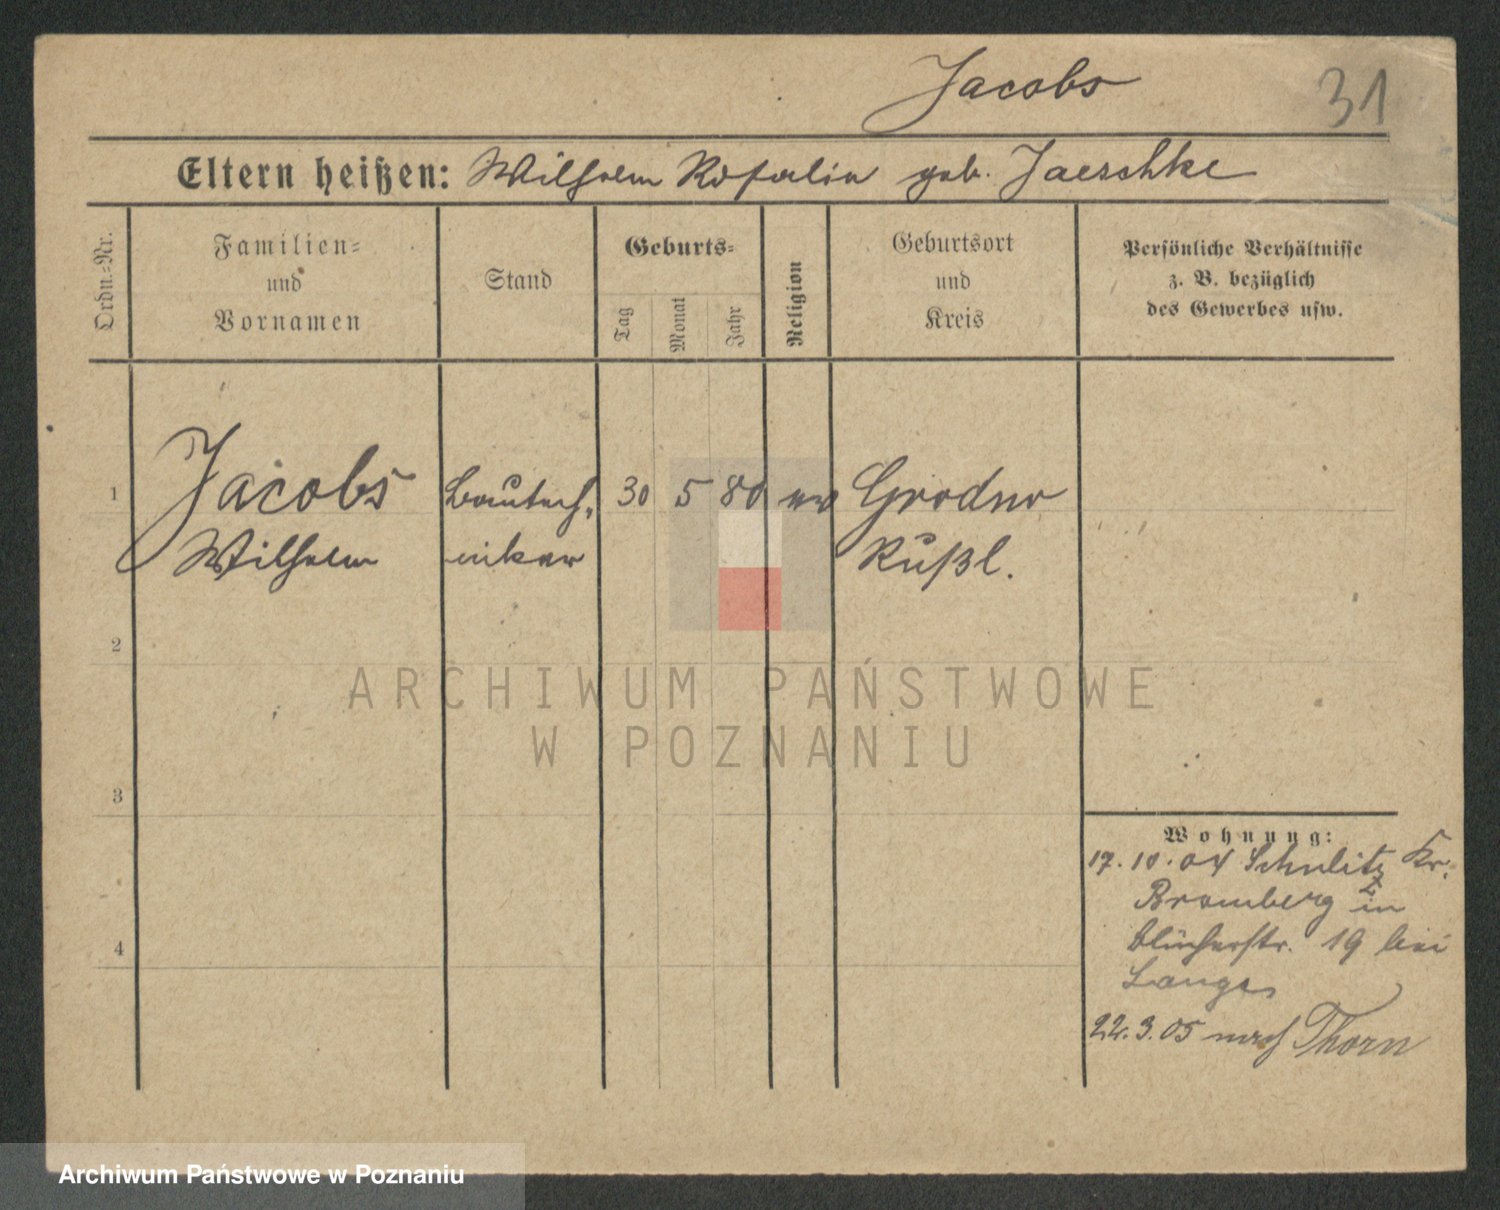 Jacobs
31
Eltern heißen: Wilhelm Rosalie geb. Jaeschke
Ordn.-Nr.
Familien-
und
Vornamen
Stand
Geburts-
Tag
Monat
Jahr
Religion
Geburtsort
und
Kreis
Persönliche Verhältnisse
z. B. bezüglich
des Gewerbes usw.
1
Jacobs
Wilhelm
Bautech-
niker
30
5
80
ev
Grodno
Rußl.
2
3
4
Wohnung:
17.10.04 Schulitz Kr.
Bromberg in
Blücherstr. 19 bei
Lange
22.3.05 nach Thorn
ARCHIWUM PAŃSTWOWE
W POZNANIU
Archiwum Państwowe w Poznaniu